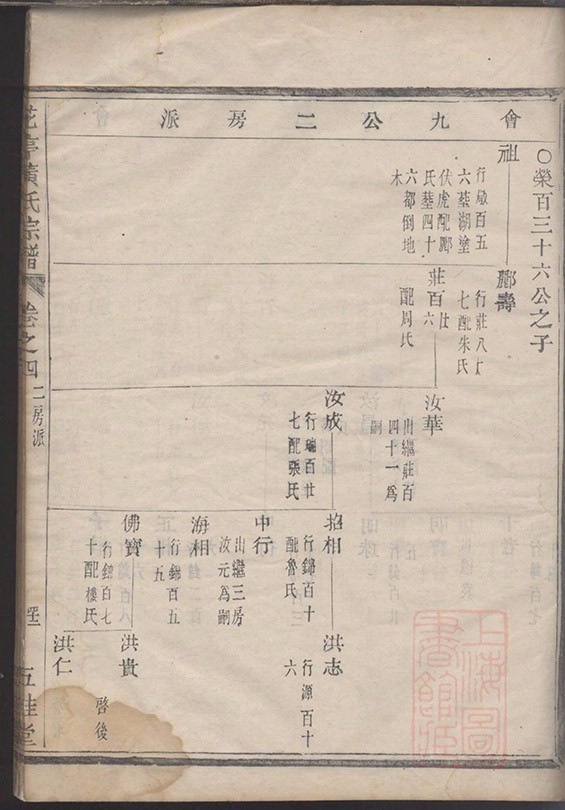 會九公二房派
〇榮百三十六公之子
祖
行啟百五
六塟湖塗
伏虎配酈
氏塟四十
六都倒地
木
酈壽
行莊八十
七配朱氏
莊仕
百六
配周氏
汝華
出繼莊百
四十一爲
嗣
汝成
行瑞百廿
七配張氏
招相
行錦百十
配魯氏
洪志
行源百十
六
中行
出繼三房
汝元為嗣
海相
行錦百五
十五
佛寶
行錦百七
十配樓氏
洪貴
啓後
洪仁
花亭黃氏宗譜
卷之四
二房派
五桂堂
上海圖書館藏